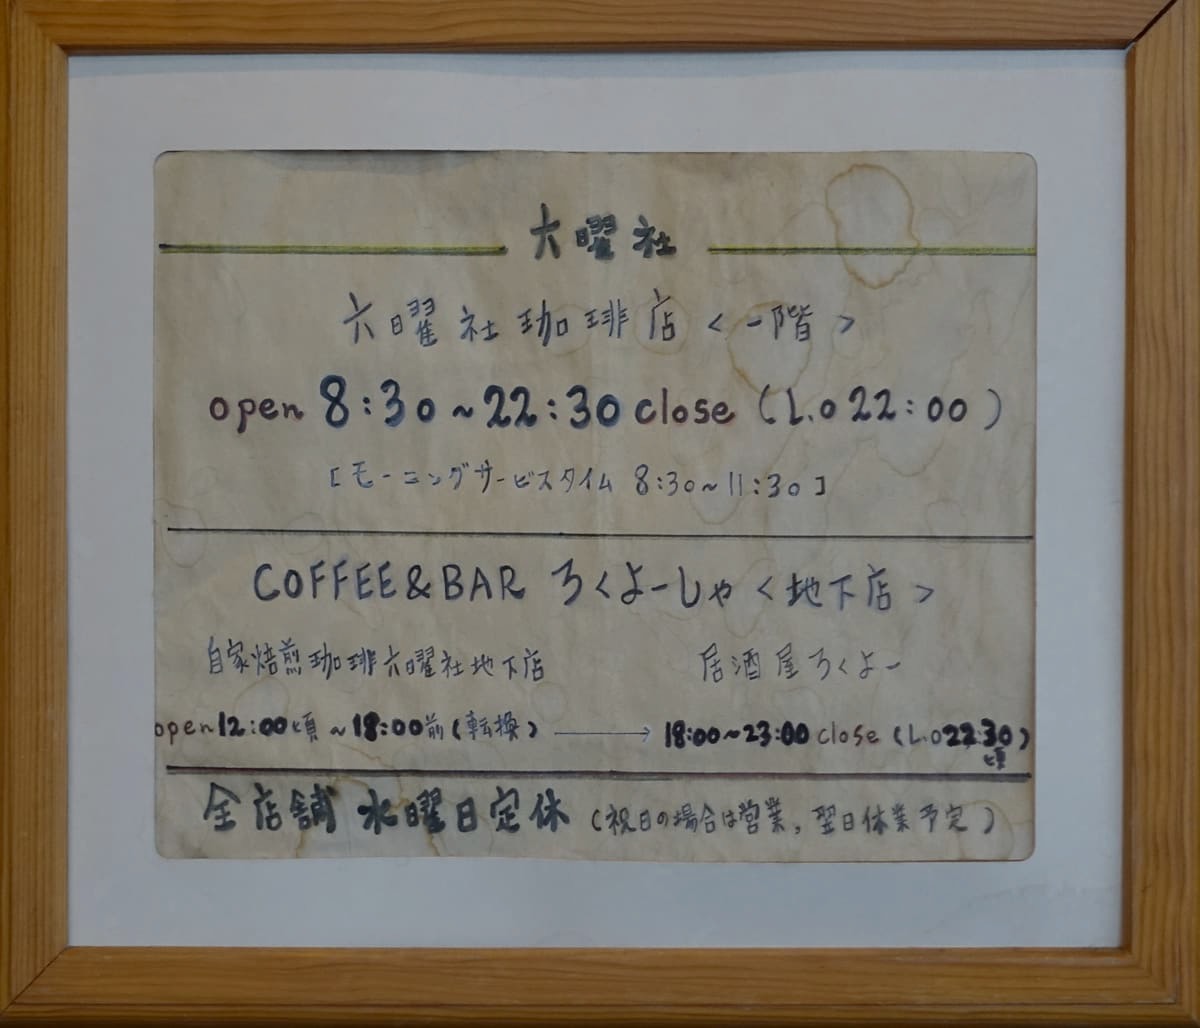 六曜社
六曜社珈琲店<一階>
open 8:30~22:30 close (L.o 22:00)
[モーニングサービスタイム 8:30~11:30]
COFFEE&BAR ろくよーしゃ<地下店>
自家焙煎珈琲六曜社地下店 居酒屋ろくよー
open 12:00頃~18:00前(転換) → 18:00~23:00 close (L.o 22:30頃)
全店舗 水曜日定休 (祝日の場合は営業,翌日休業予定)